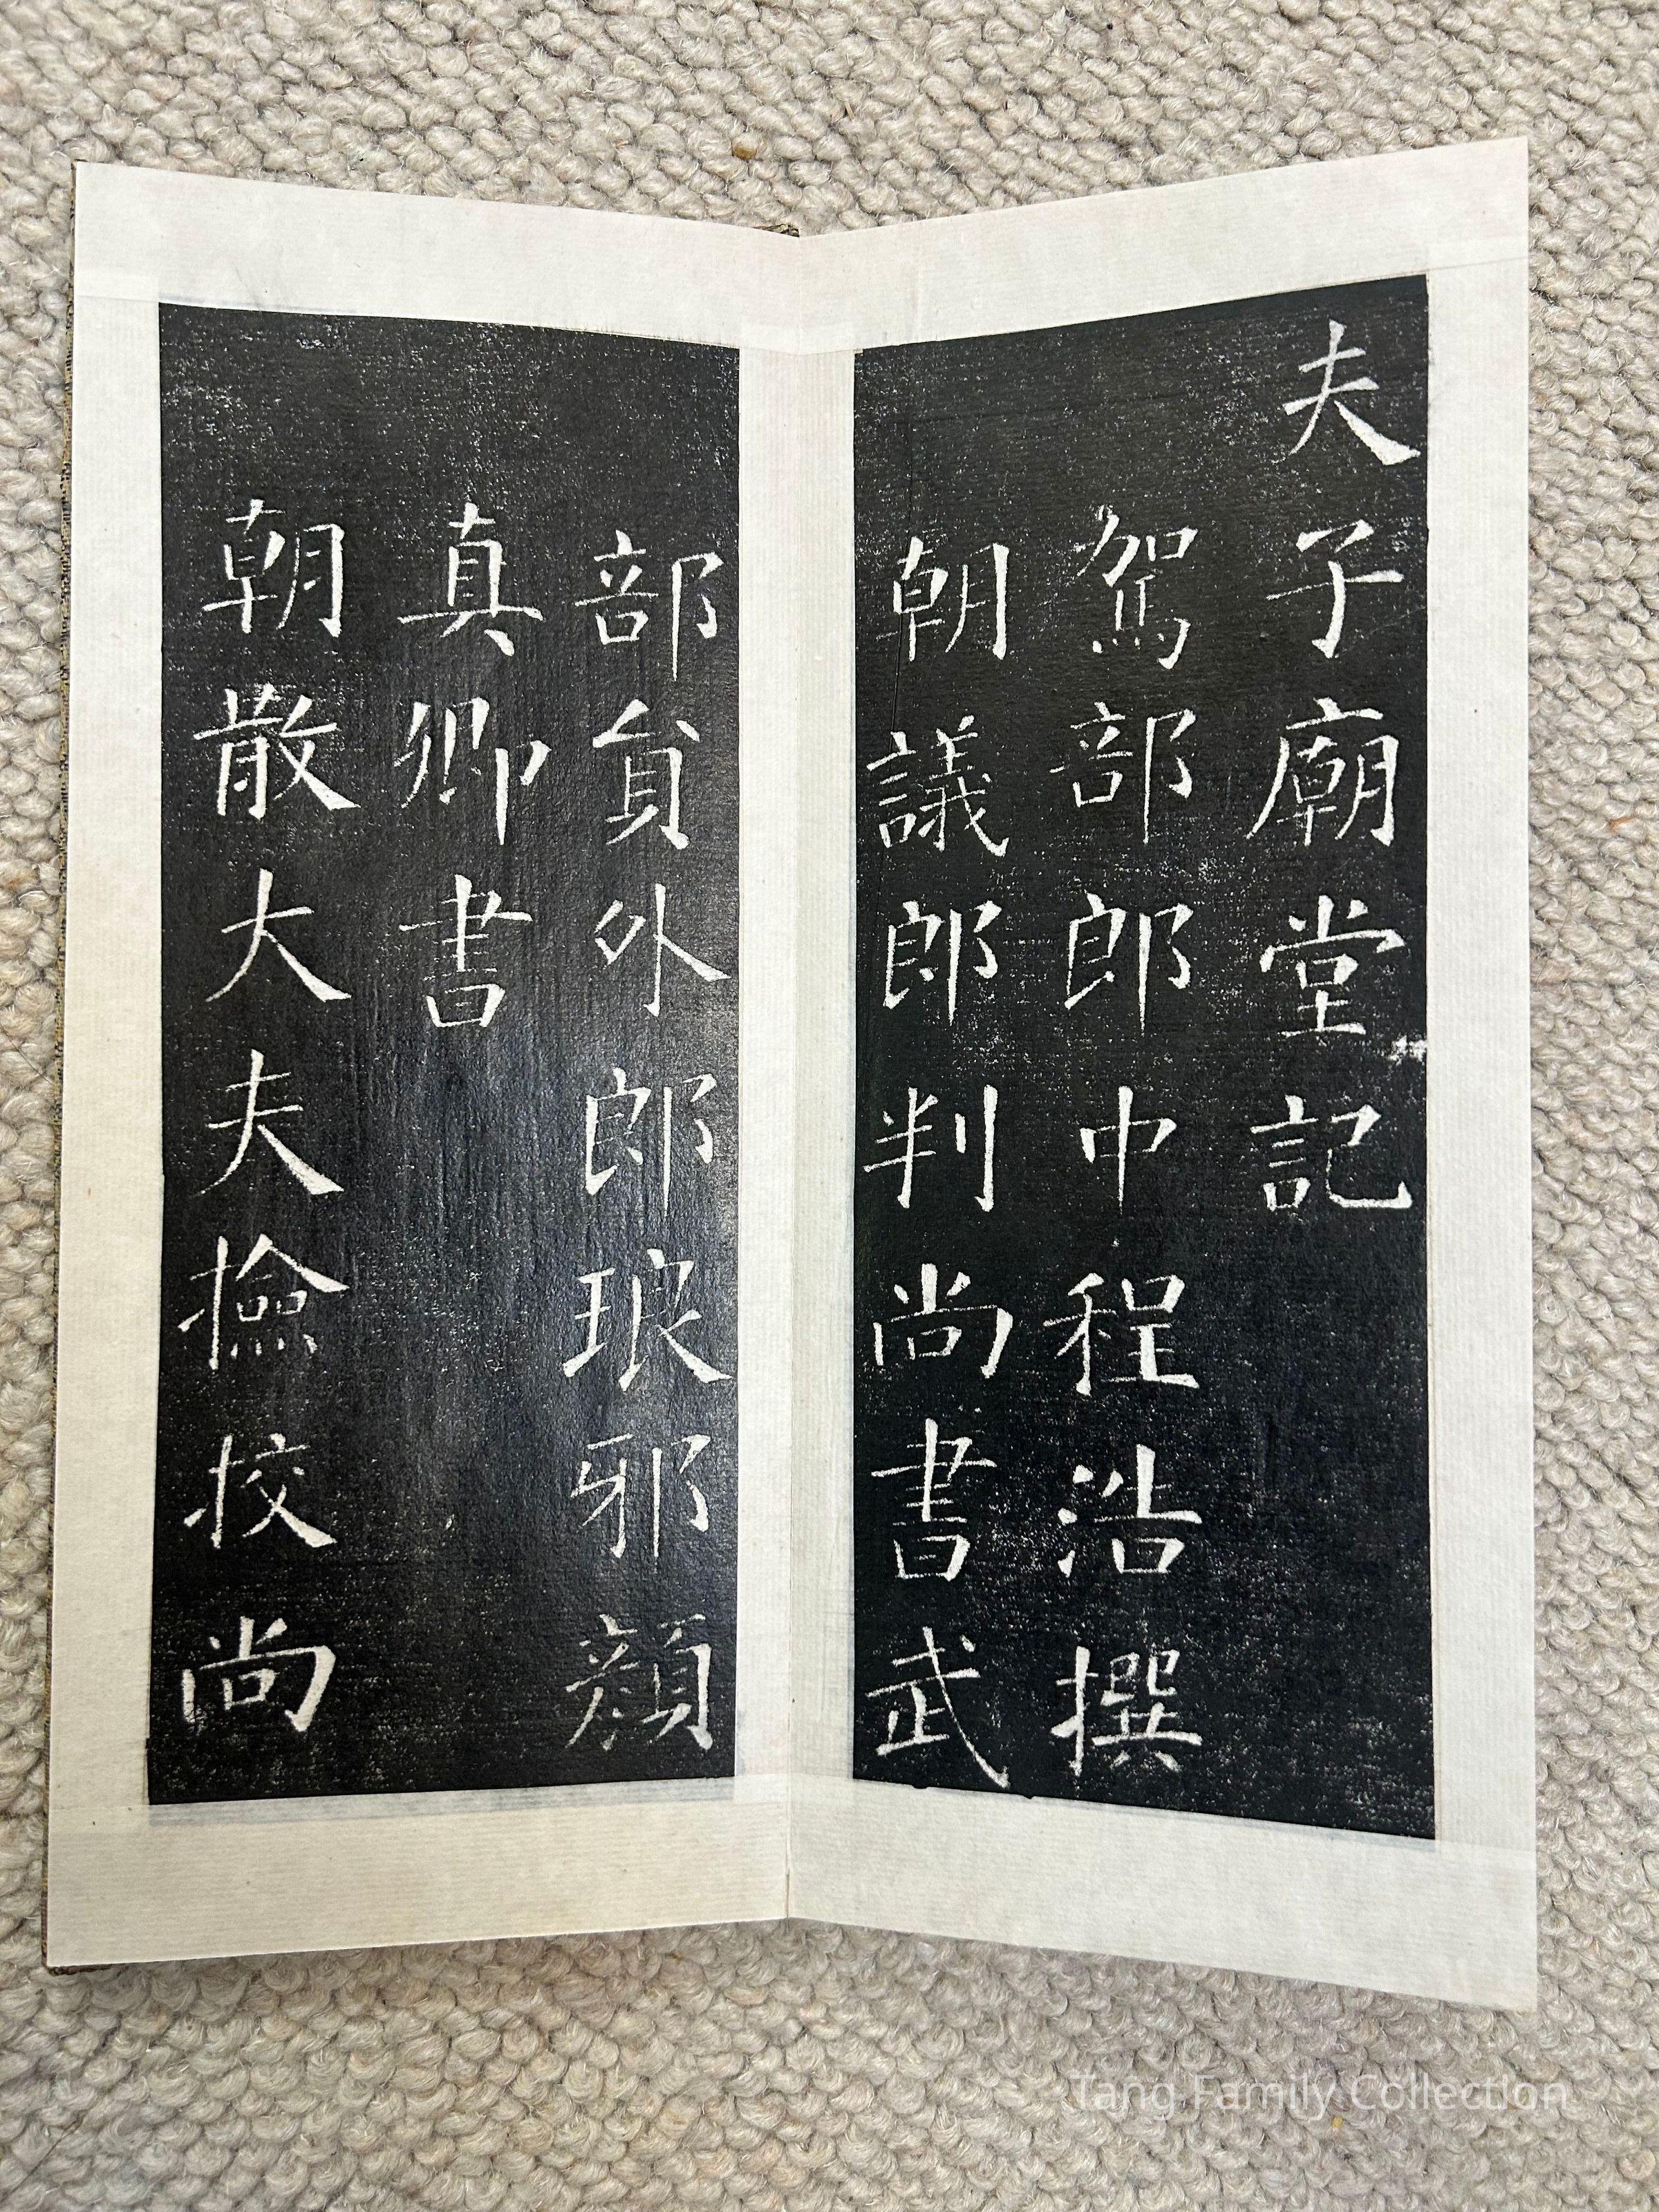 夫子廟堂記
駕部郎中程浩撰
朝議郎判尚書武
部貟外郎琅邪顏
真卿書
朝散大夫撿挍尚
Tang Family Collection